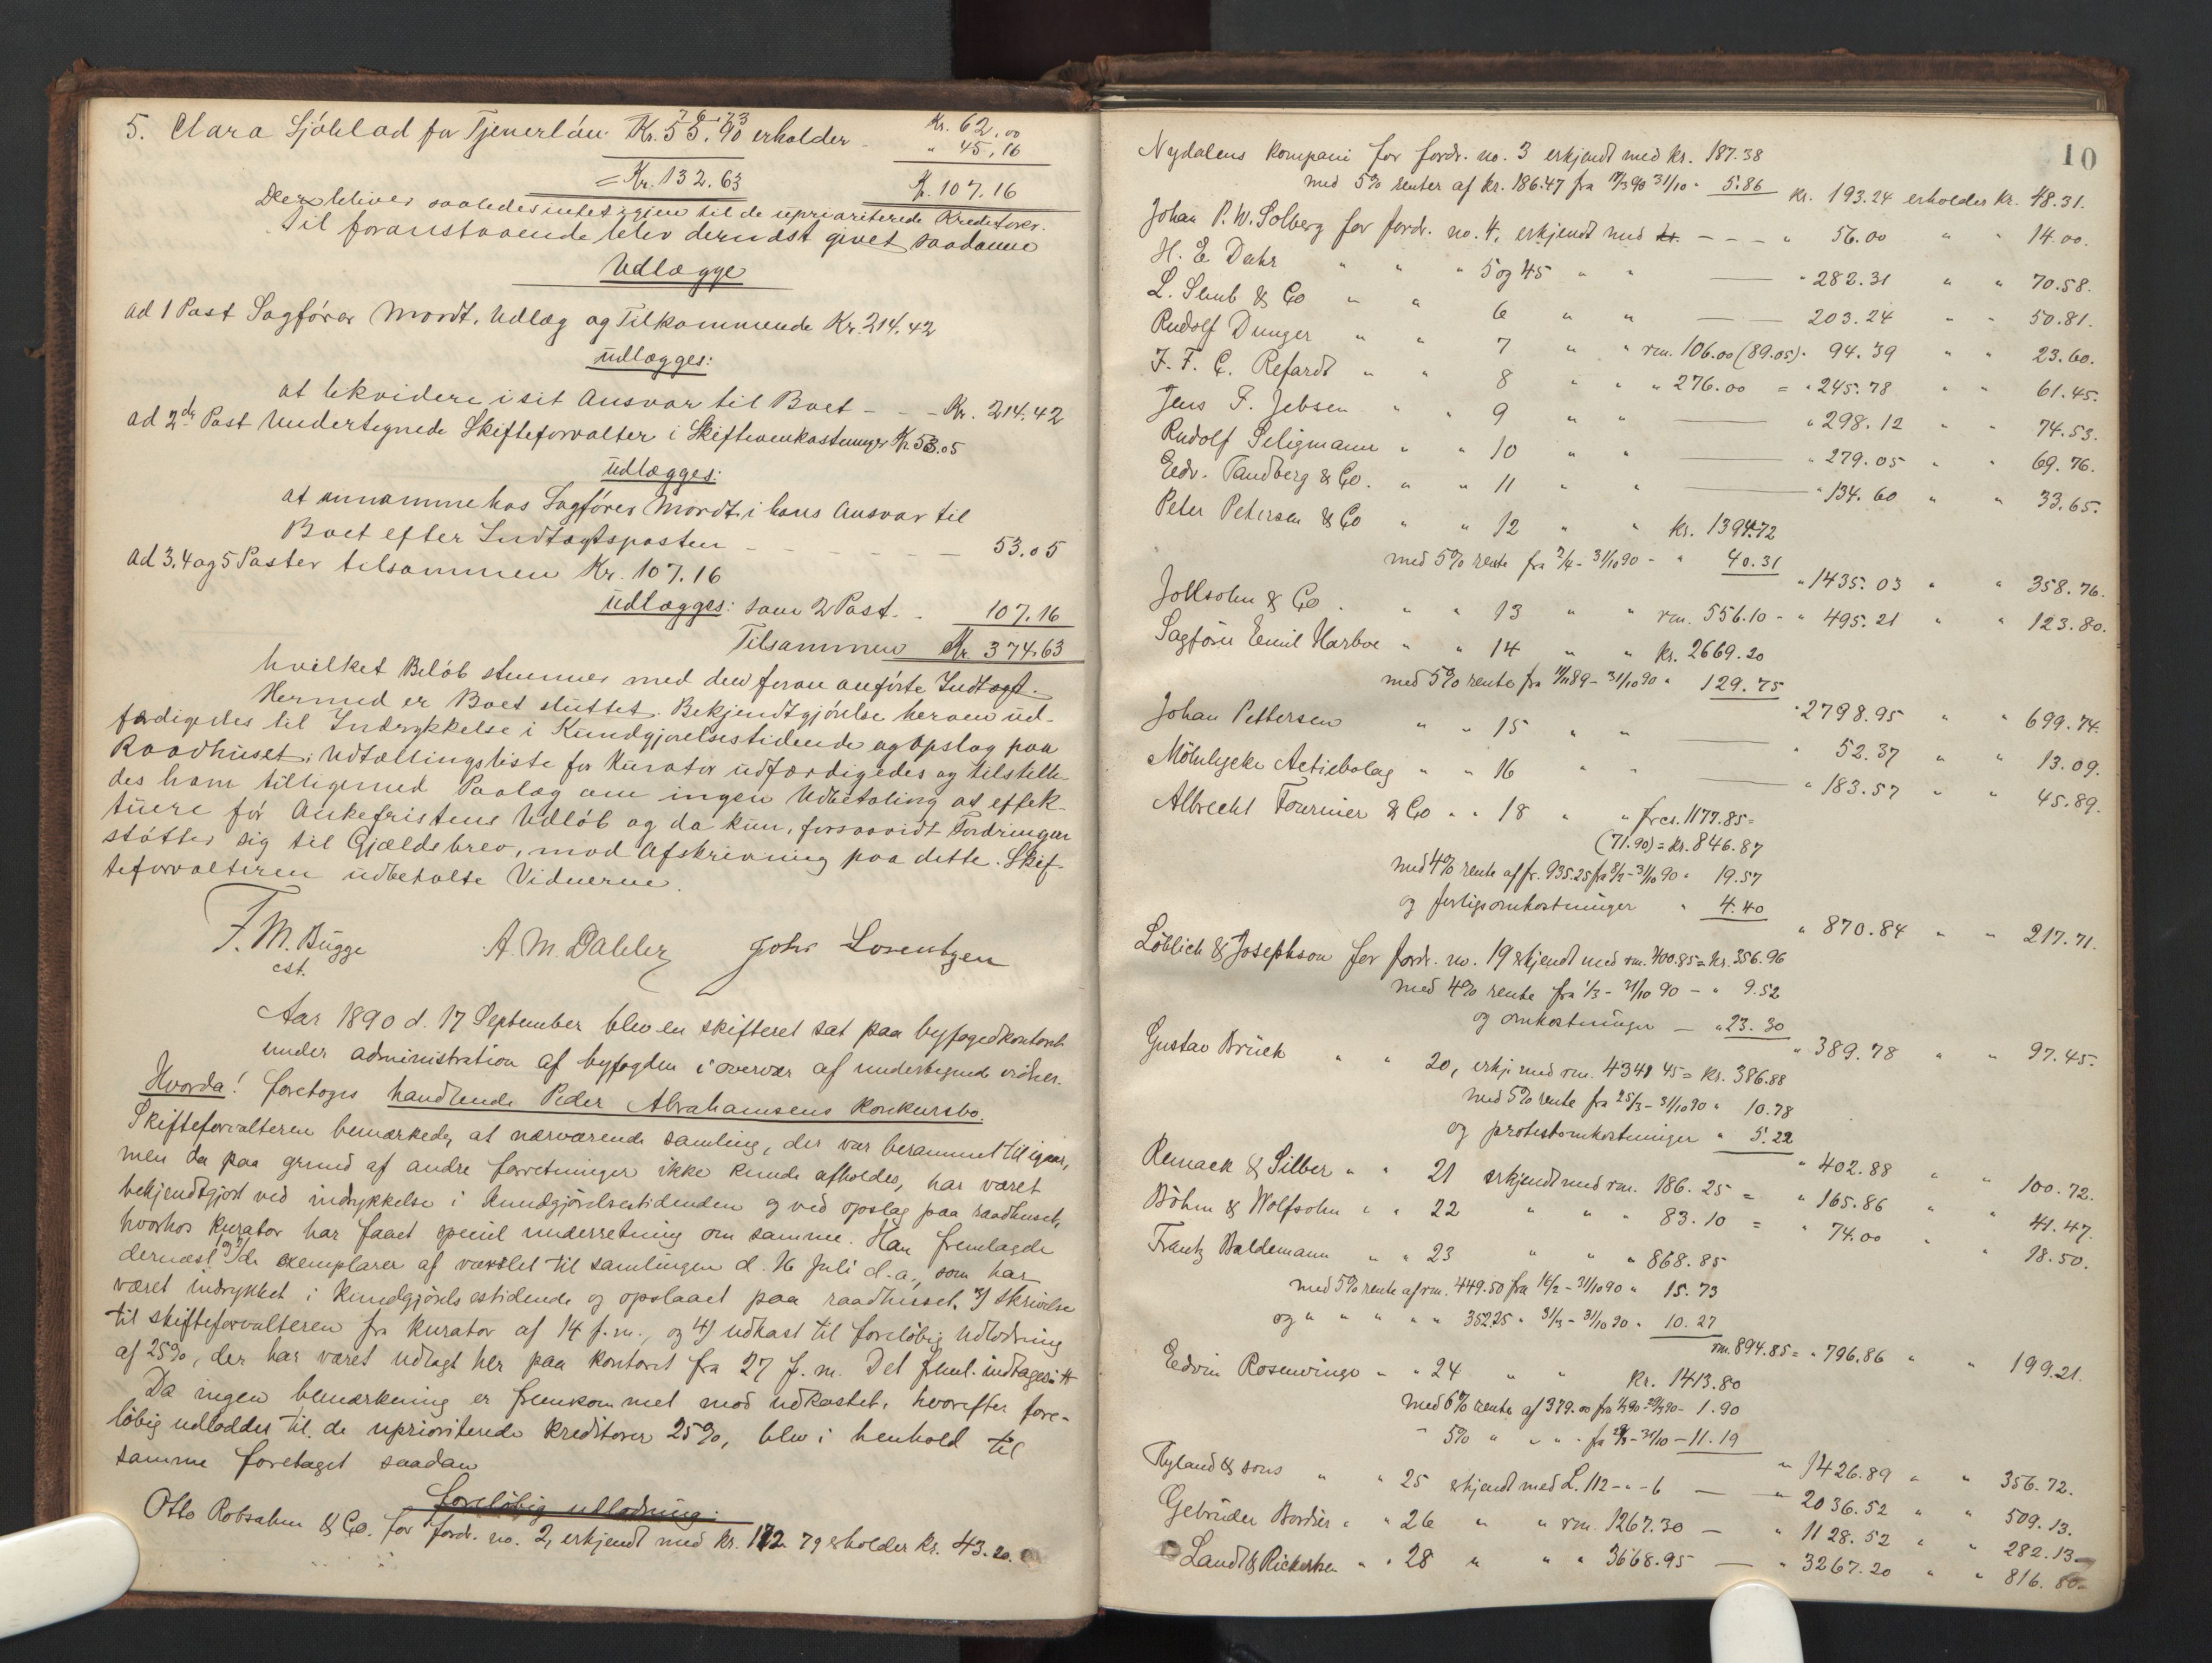 5. Clara Sjöblad for Tjenerløn Kr. 55.90 erholder - Kr. 62.00
76.73 " 45,16
= Kr. 132.63 Kr. 107.16
Der bliver saaledes intet igjen til de uprioriterede Kreditorer.
Til foranstaaende blev dernæst givet saadanne
Udlægge
ad 1 Post Sagfører Mordt. Udlæg og Tilkommende Kr. 214.42
udlægges:
at likvidere i sit Ansvar til Boet - - - Kr. 214.42
ad 2den Post Undertegnede Skifteforvalter i Skifteomkostninger Kr. 53.05
udlægges:
at annamme hos Sagfører Mordt i hans Ansvar til
Boet efter Indtægtsposten - - - - - 53.05
ad 3.4 og 5 Poster tilsammen Kr. 107.16
udlægges: som 2 Post. . 107.16
Tilsammen Kr. 374.63
hvilket Beløb stemmer med den foran anførte Indtægt.
Hermed er Boet sluttet. Bekjendtgjørelse herom ud-
færdigedes til Indrykkelse i Kundgjørelsestidende og Opslag paa
Raadhuset; Udtællingsliste for Kurator udfærdigedes og tilstille-
des ham tilligemed Paalæg om ingen Udbetaling at effek-
tuere før Ankefristens Udløb og da kun, forsaavidt Fordringen
støtter sig til Gjældsbrev, mod Afskrivning paa dette. Skif-
teforvalteren udbetalte Vidnerne.
F. M. Bugge A. M. Dahler Johs Lorentzen
cst.
Aar 1890 d. 17 September blev en skifteret sat paa byfogedkontoret
under administration af byfogden i overvær af undertegnede vidner.
Hvorda! foretoges handlende Peder Abrahamsens konkursbo.
Skifteforvalteren bemærkede, at nærværende samling, der var berammet til igaar,
men da paa grund af andre forretninger ikke kunde afholdes, har været
bekjendtgjort ved indrykkelse i kundgjørelsestidenden og ved opslag paa raadhuset,
hvorhos kurator har faaet speciel underretning om samme. Han fremlagde
dernæst 1 og 2/ de exemplarer af varslet til samlingen d. 16 Juli d. a., som har
været indrykket i kundgjørelsestidende og opslaaet paa raadhuset. 3/ skrivelse
til skifteforvalteren fra kurator af 14 f. m., og 4/ udkast til foreløbig udlodning
af 25%, der har været udlagt her paa kontoret fra 27 f. m. Det freml. indtages
Da ingen bemærkning er fremkommet mod udkastet, hvorefter fore-
løbig udloddes til de uprioriterede kreditorer 25%, blev i henhold til
samme foretaget saadan
foreløbig udlodning:
Otto Robsahm & Co. for fordr. no. 2, erkjendt med kr. 172.79 erholder kr. 43.20.
10
Nydalens Kompani for fordr. no. 3 erkjendt med kr. 187.38
med 5% renter af kr. 186.47 fra 17/3 90 31/10 " 5.86 kr. 193.24 erholder kr. 48.31.
Johan P. W. Solberg for fordr. no. 4, erkjendt med kr. - - - " 56.00 " " 14.00.
H. E. Dahr " " " 5 og 45 " " — " 282.31 " " 70.58.
L. Stub & Co " " 6 " " — 203.24 " " 50.81.
Rudolf Dunger " " 7 " " rm. 106.00 (89.05) " 94.39 " " 23.60.
F. F. C. Refardt " " 8 " " " 276.00 = " 245.78 " " 61.45.
Jens F. Jebsen " " 9 " " — " 298.12 " " 74.53.
Rudolf Seligmann " " 10 " " — " 279.05 " " 69.76.
Edv. Tandberg & Co. " " 11 " " — " 134.60 " " 33.65.
Peter Petersen & Co " " 12 " " kr. 1394.72
med 5% rente fra 2/4 - 31/10 90 - " 40.31
" 1435.03 " " 358.76.
Jollsohn & Co. " " 13 " " rm. 556.10 - " 495.21 " " 123.80.
Sagfører Emil Harboe " " 14 " " kr. 2669.20
med 5% rente fra 11/11 89 - 31/10 90 " 129.75
" 2798.95 " " 699.74.
Johan Pettersen " " 15 " " — " 52.37 " " 13.09.
Mölnlycke Actiebolag " " 16 " " — " 183.57 " " 45.89.
Albrecht Fournier & Co " " 18 " " frcs. 1177.85 =
(71.90) = kr. 846.87
med 4% rente af fr. 935.25 fra 8/3 - 31/10 90 " 19.57
og forligsomkostninger " 4.40
" 870.84 " " 217.71.
Löblich & Josephson for fordr. no. 19 erkjendt med rm. 400.85 = kr. 356.96
med 4% rente fra 1/3 - 31/10 90 - " 9.52
og omkostninger — " 23.30
" 389.78 " " 97.45.
Gustav Brück " " 20, erkj. med rm. 434 45 = kr. 386.88
med 5% rente fra 25/3 - 31/10 90 " 10.78
og protestomkostninger " 5.22
" 402.88 " " 100.72.
Remack & Silber " " 21 erkjendt med rm. 186.25 = " 165.86 " " 41.47.
Böhm & Wolfsohn " " 22 " " " 83.10 = " 74.00 " " 18.50.
Frantz Baldemann " " 23 " " " 868.85
med 5% rente af rm. 449.50 fra 16/2 - 31/10 90 " 15.73
og " " " " " 352.25 " 31/3 - 31/10 90 " 10.27
rm. 894.85 = " 796.86 " " 199.21.
Edvin Rosenvinge " " 24 " " kr. 1413.80
med 6% rente af 379.00 1.90
" 5% " " " fra - 31/10 - 11.19
" 1426.89 " " 356.72.
Ryland & sons " " 25 erkjendt med L. 112 - " - 6 — " 2036.52 " " 509.13.
Gebrüder Bordier " " 26 " " rm. 1267.30 — " 1128.52 " " 282.13
Landt & Rickertsen " " 28 " " " 3668.95 — " 3267.20 " " 816.80